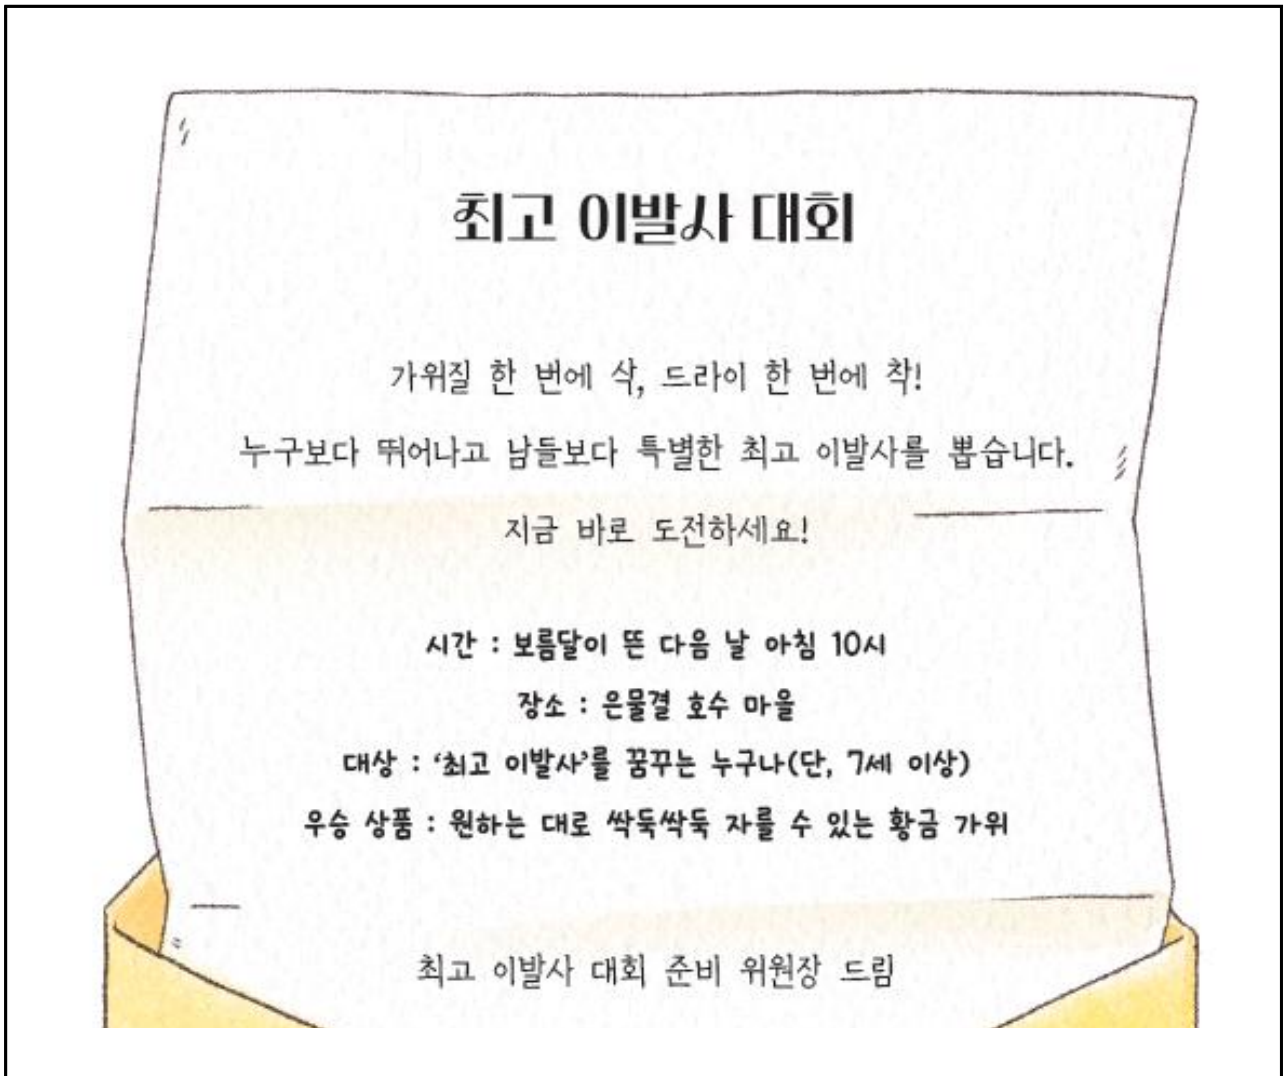 최고 이발사 대회
가위질 한 번에 삭, 드라이 한 번에 착!
누구보다 뛰어나고 남들보다 특별한 최고 이발사를 뽑습니다.
지금 바로 도전하세요!
시간 : 보름달이 뜬 다음 날 아침 10시
장소 : 은물결 호수 마을
대상 : ‘최고 이발사’를 꿈꾸는 누구나(단, 7세 이상)
우승 상품 : 원하는 대로 싹둑싹둑 자를 수 있는 황금 가위
최고 이발사 대회 준비 위원장 드림